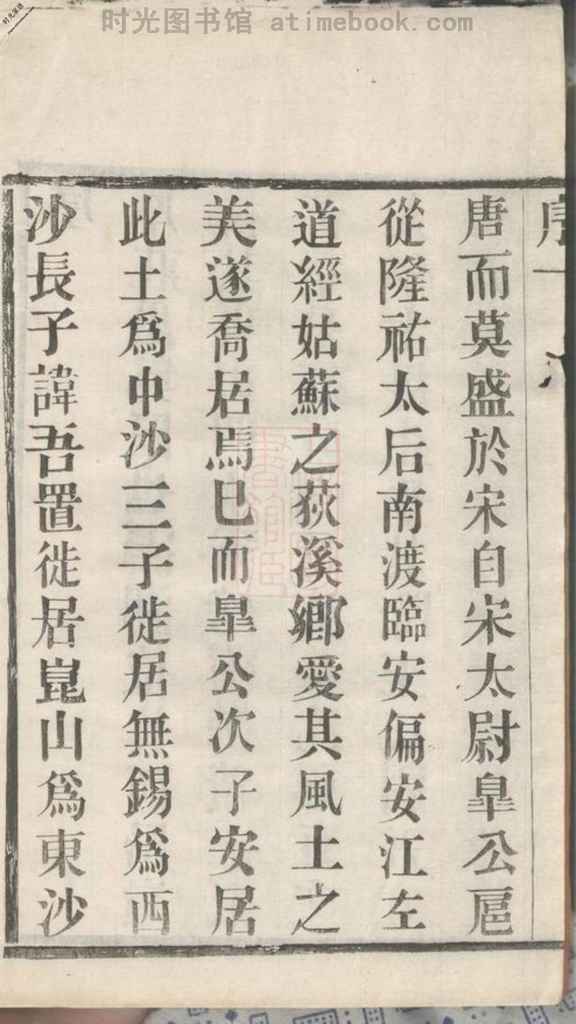 时光图书馆 atimebook.com
唐而莫盛於宋自宋太尉臯公扈
從隆祐太后南渡臨安偏安江左
道經姑蘇之荻溪鄉愛其風土之
美遂喬居焉已而臯公次子安居
此土爲中沙三子徙居無錫爲西
沙長子諱吾置徙居崑山爲東沙